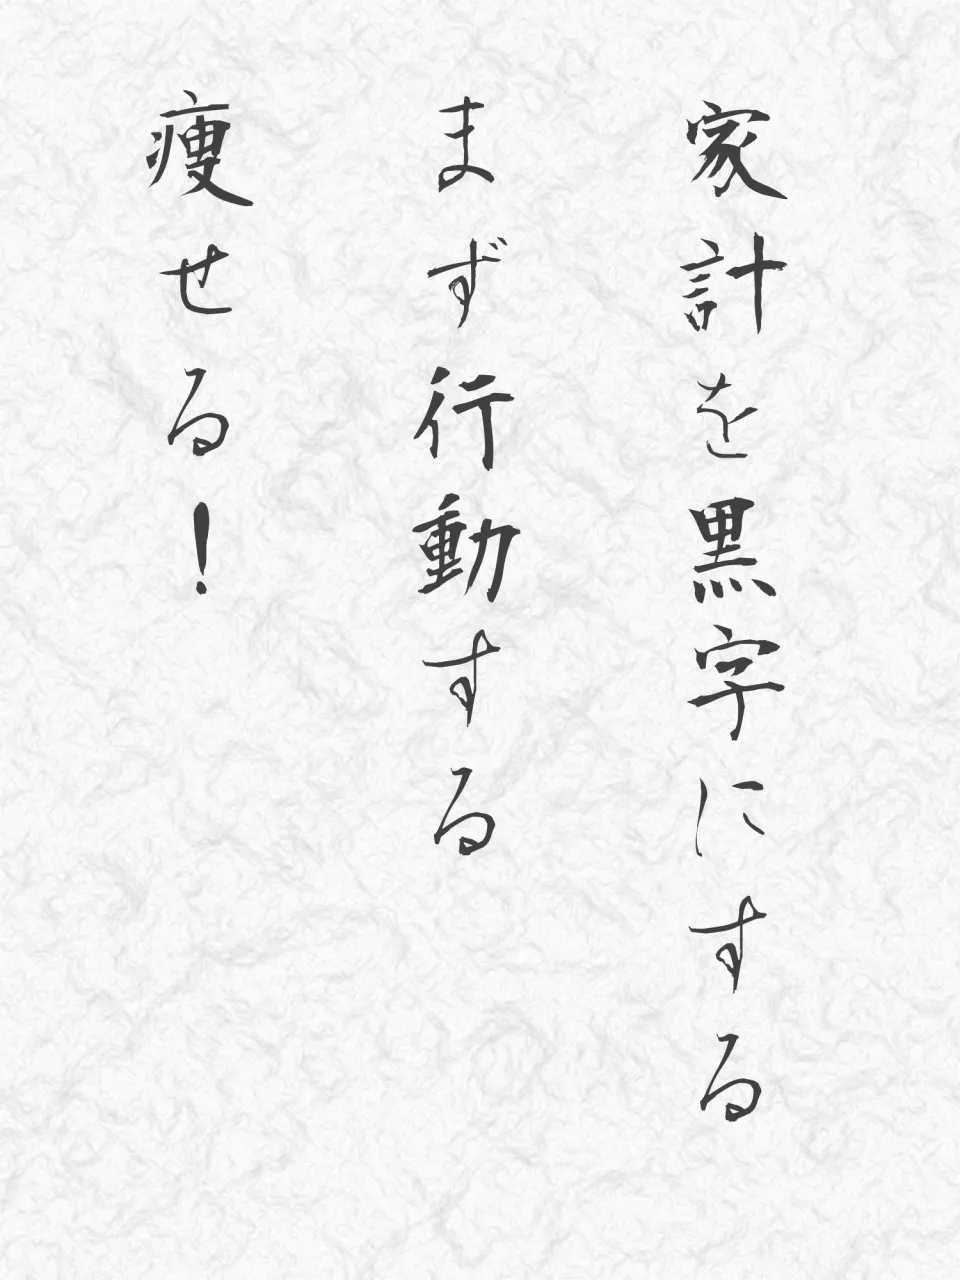 家計を黒字にする
まず行動する
痩せる！